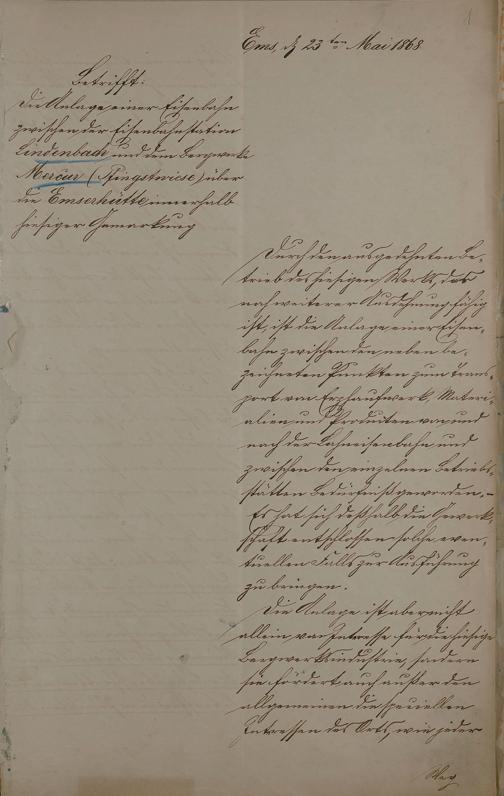 1
Ems, d 23ten Mai 1868
Betrifft:
Die Anlage einer Eisenbahn
zwischen der Eisenbahnstation
Lindenbach und dem Bergwerke
Mercur (Pfingstwiese) über
die Emserhütte innerhalb
hiesiger Gemarkung
Durch den ausgedehnten Be-
trieb des hiesigen Werks, das
noch weiterer Ausdehnung fähig
ist, ist die Anlage einer Eisen-
bahn zwischen den neben be-
zeichneten Punkten zum Trans-
port von Erzhaufwerk, Materi-
alien und Produkten von und
nach der Lahneisenbahn und
zwischen den einzelnen Betriebs-
stätten Bedürfniß geworden. -
Es hat sich deßhalb die Gewerk-
schaft entschlossen solche even-
tuellen Falls zur Ausführung
zu bringen.
Die Anlage ist aber nicht
allein von Interesse für die hiesige
Bergwerksindustrie, sondern
sie fördert auch außer den
allgemeinen die speciellen
Interessen des Orts, wie jeder